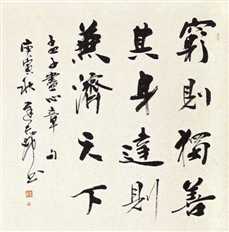 窮則獨善
其身達則
兼濟天下
孟子盡心章句
庚寅秋